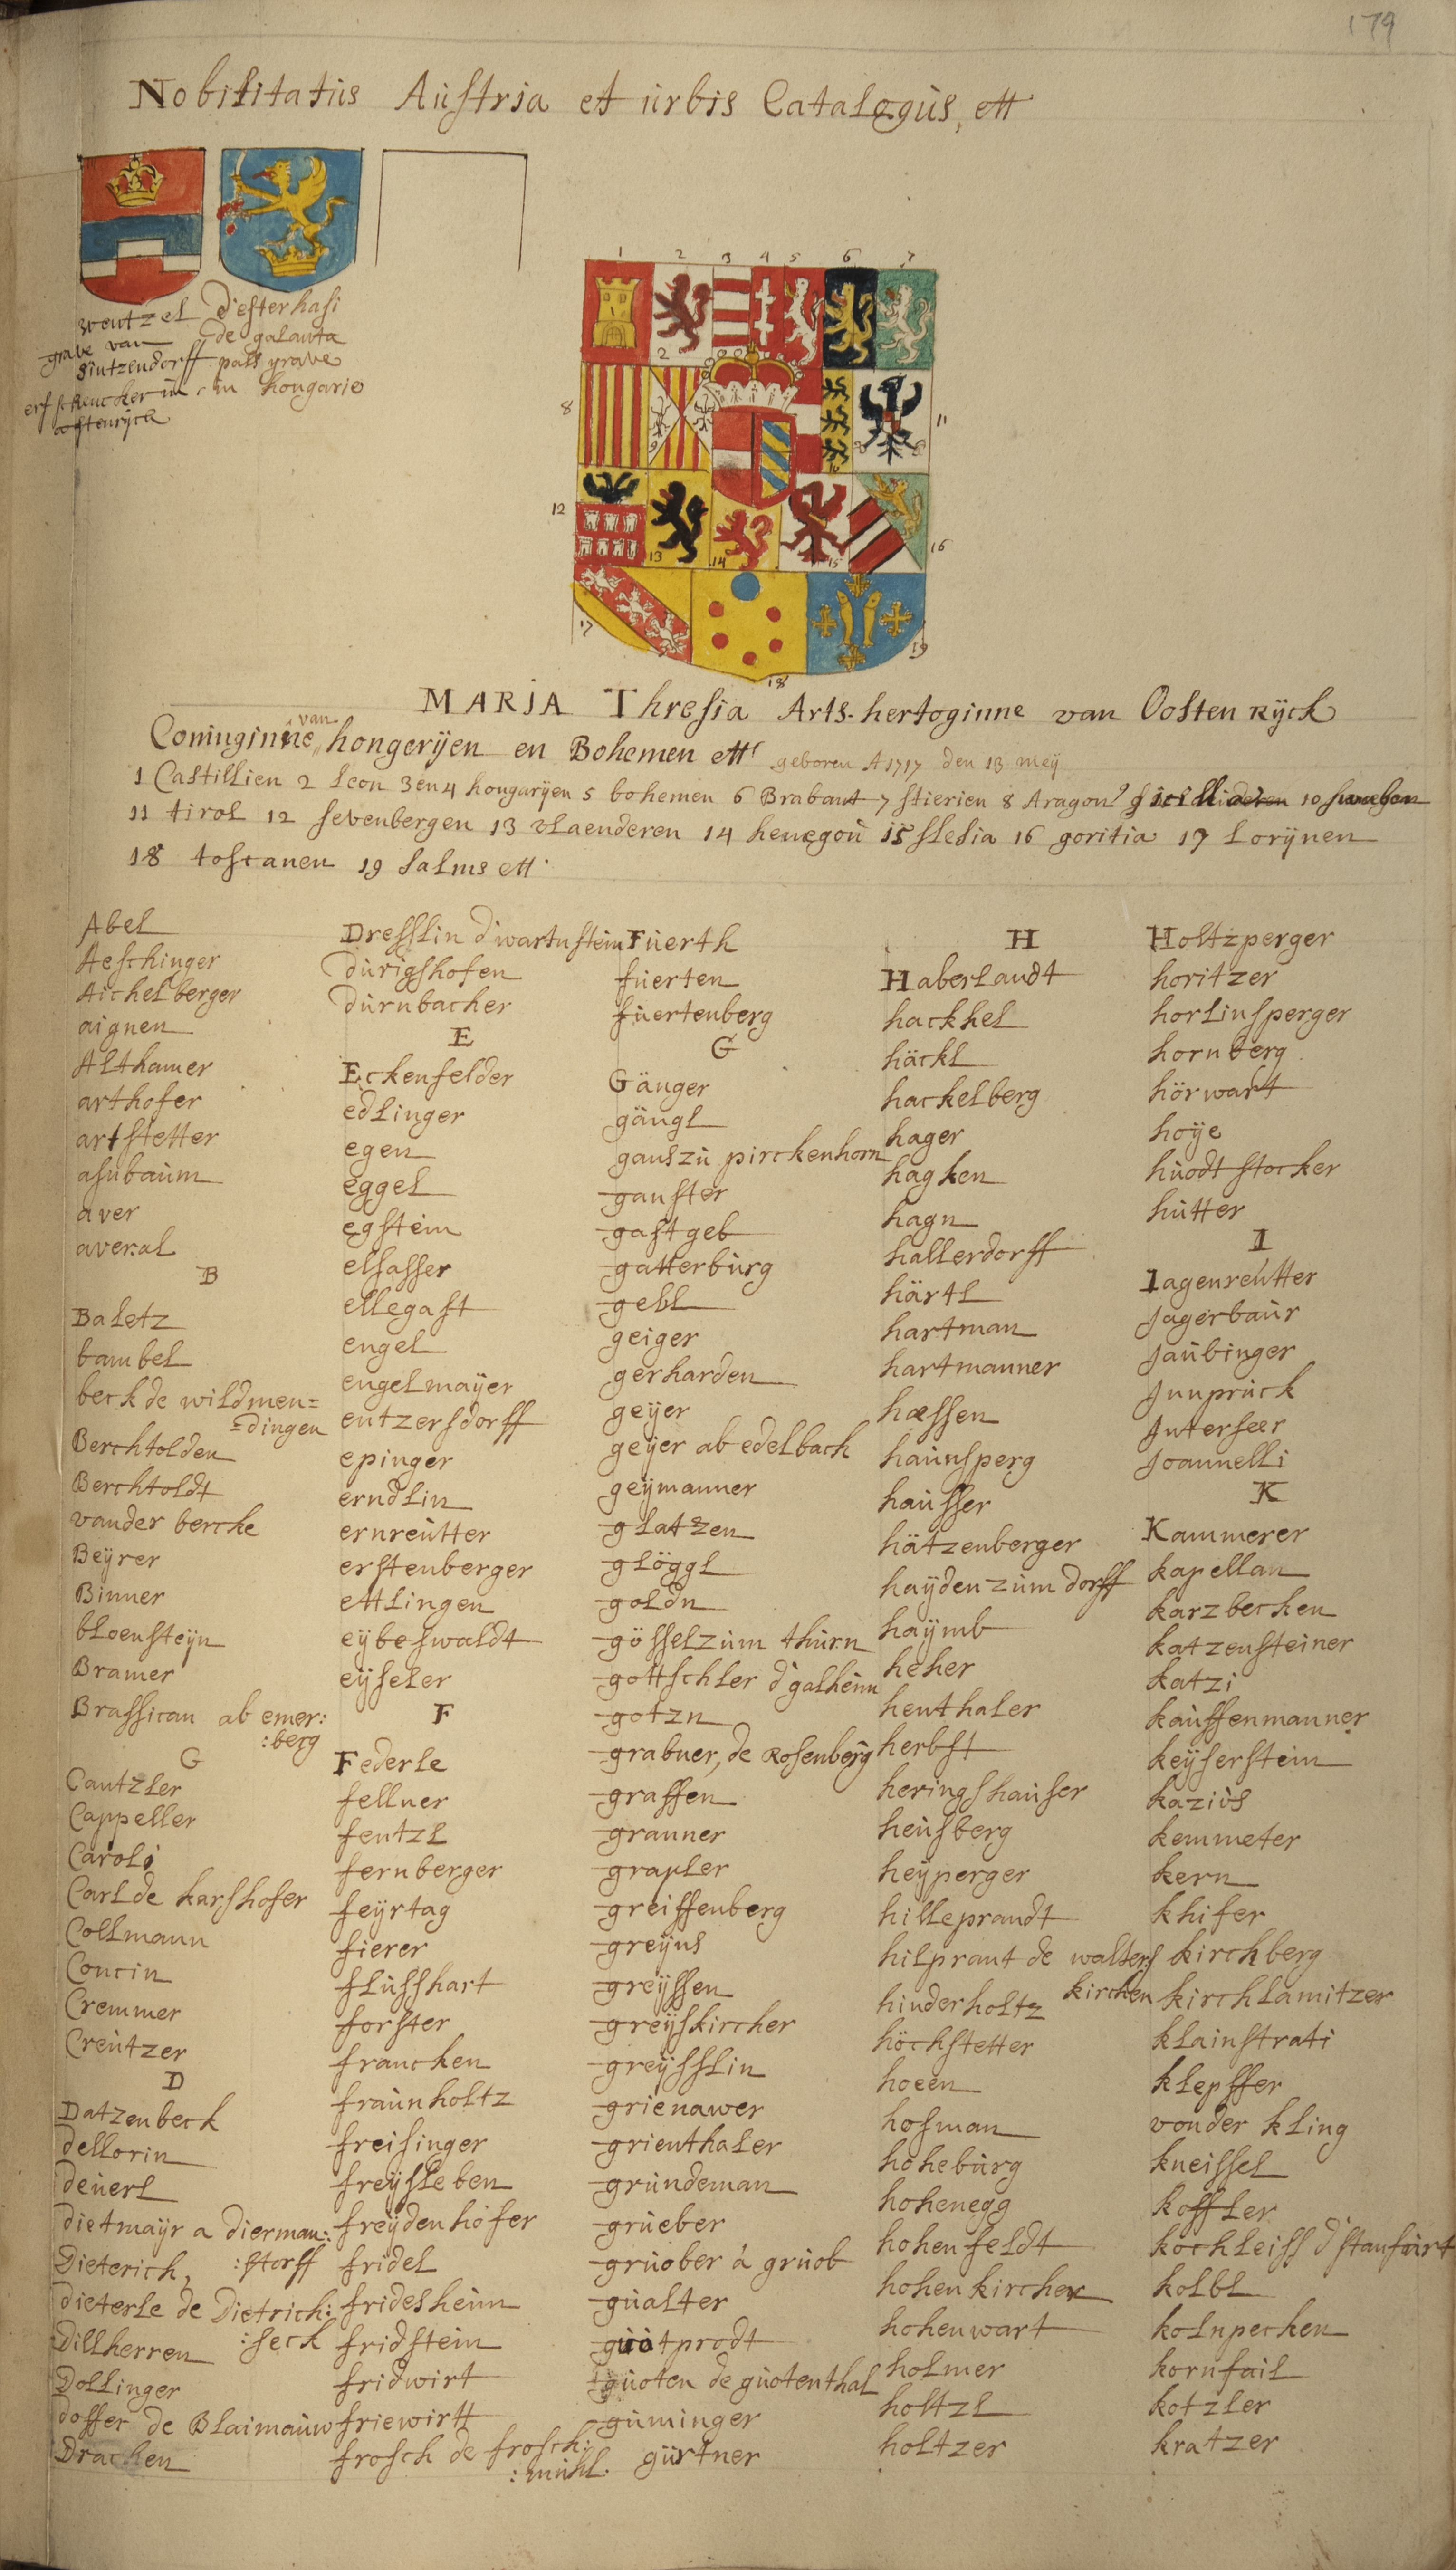 179
Nobilitatus Austria et urbis Catalogus, ett
wentzel
grave van
Sintzendorff
erfschencker in
oostenryck
d'esterhasi
de galanta
pals grave
in hongarie
1 2 3 4 5 6 7
2
8
9
10
11
12
13
14
15
16
17
18
19
MARIA Thresia Arts-hertoginne van Oosten Ryck
Coninginne van hongerijen en Bohemen ett
geboren A 1717 den 13 meij
1 Castillien 2 Leon 3 en 4 hongarijen 5 bohemen 6 Brabant 7 stierien 8 Aragon 9 10 swaben
11 tirol 12 sevenbergen 13 vlaenderen 14 henegou 15 slesia 16 goritia 17 Lorijnen
18 toscanen 19 salms ett
Abel
Aeschinger
Aichelberger
aignen
Althamer
arthofer
artstetter
asnbaum
aver
averal
B
Baletz
bambel
beck de wildmen=
=dingen
Berchtolden
Berchtoldt
vander bercke
Beyrer
Binner
bloensteyn
Bramer
Brassican ab emer:
:berg
G
Cantzler
Cappeller
Caroli
Carl de karshofer
Collmann
Concin
Cremmer
Creutzer
D
Datzenbeck
dellorin
deuerl
dietmayr a dierman:
:storff
Dieterich,
dieterle de Dietrich:
:seck
Dillherren
Dollinger
doffer de Blaimauw
Drachen
Dresslin d'wartnstein
durigshofen
durnbacher
E
Eckenfelder
edlinger
egen
eggel
egstein
elsasser
ellegast
engel
engelmayer
entzersdorff
epinger
erndlin
ernreutter
erstenberger
ettlingen
eybeswaldt
eyseler
F
Federle
fellner
fentzl
fernberger
feyrtag
fierer
flusshart
forster
francken
fraunholtz
freisinger
freysleben
freydenhofer
fridel
fridesheim
fridstein
fridwirt
friewirtt
frosch de frosch:
:muhl.
Fuerth
fuerten
fuertenberg
G
Gänger
gängl
gans zu pirckenhorn
ganster
gastgeb
gatterburg
gebl
geiger
gerharden
geyer
geyer ab edelbach
geymanner
glatzen
glöggl
goldn
gössel zum thurn
gottschler d'galheim
gotzn
grabner, de Rosenberg
graffen
granner
grapler
greiffenberg
greyns
greyssen
greyskircher
greysslin
grienawer
grienthaler
grundeman
grueber
gruober à gruob
gualter
guotprodt
guoten de guotenthal
guminger
gurtner
H
Haberlandt
hackhel
häckl
hackelberg
hager
hagken
hagn
hallerdorff
härtl
hartman
hartmanner
hæssen
haunsperg
hausser
hätzenberger
hayden zum dorff
haymb
heher
henthaler
herbst
heringshauser
heusberg
heyperger
hilleprandt
hilprant de walters
kirchen
hinderholtz
höchstetter
hoeen
hofman
hoheburg
hohenegg
hohenfeldt
hohenkircher
hohenwart
holmer
holtzl
holtzer
Holtzperger
horitzer
horlinsperger
hornberg
hörwart
hoye
huodtstocker
hutter
I
Iagenreutter
Jagerbaur
Jaubinger
Jnnpruck
Jnterseer
Joannelli
K
Kammerer
kapellan
karzbecken
katzensteiner
katzi
kauffenmanner
keyserstein
kazius
kemmeter
kern
khifer
kirchberg
kirchlamitzer
klainstrati
klepffer
vonder kling
kneissel
koffler
kochleiss d'stanfurt
kolbl
kolnpecken
kornfail
kotzler
kratzer